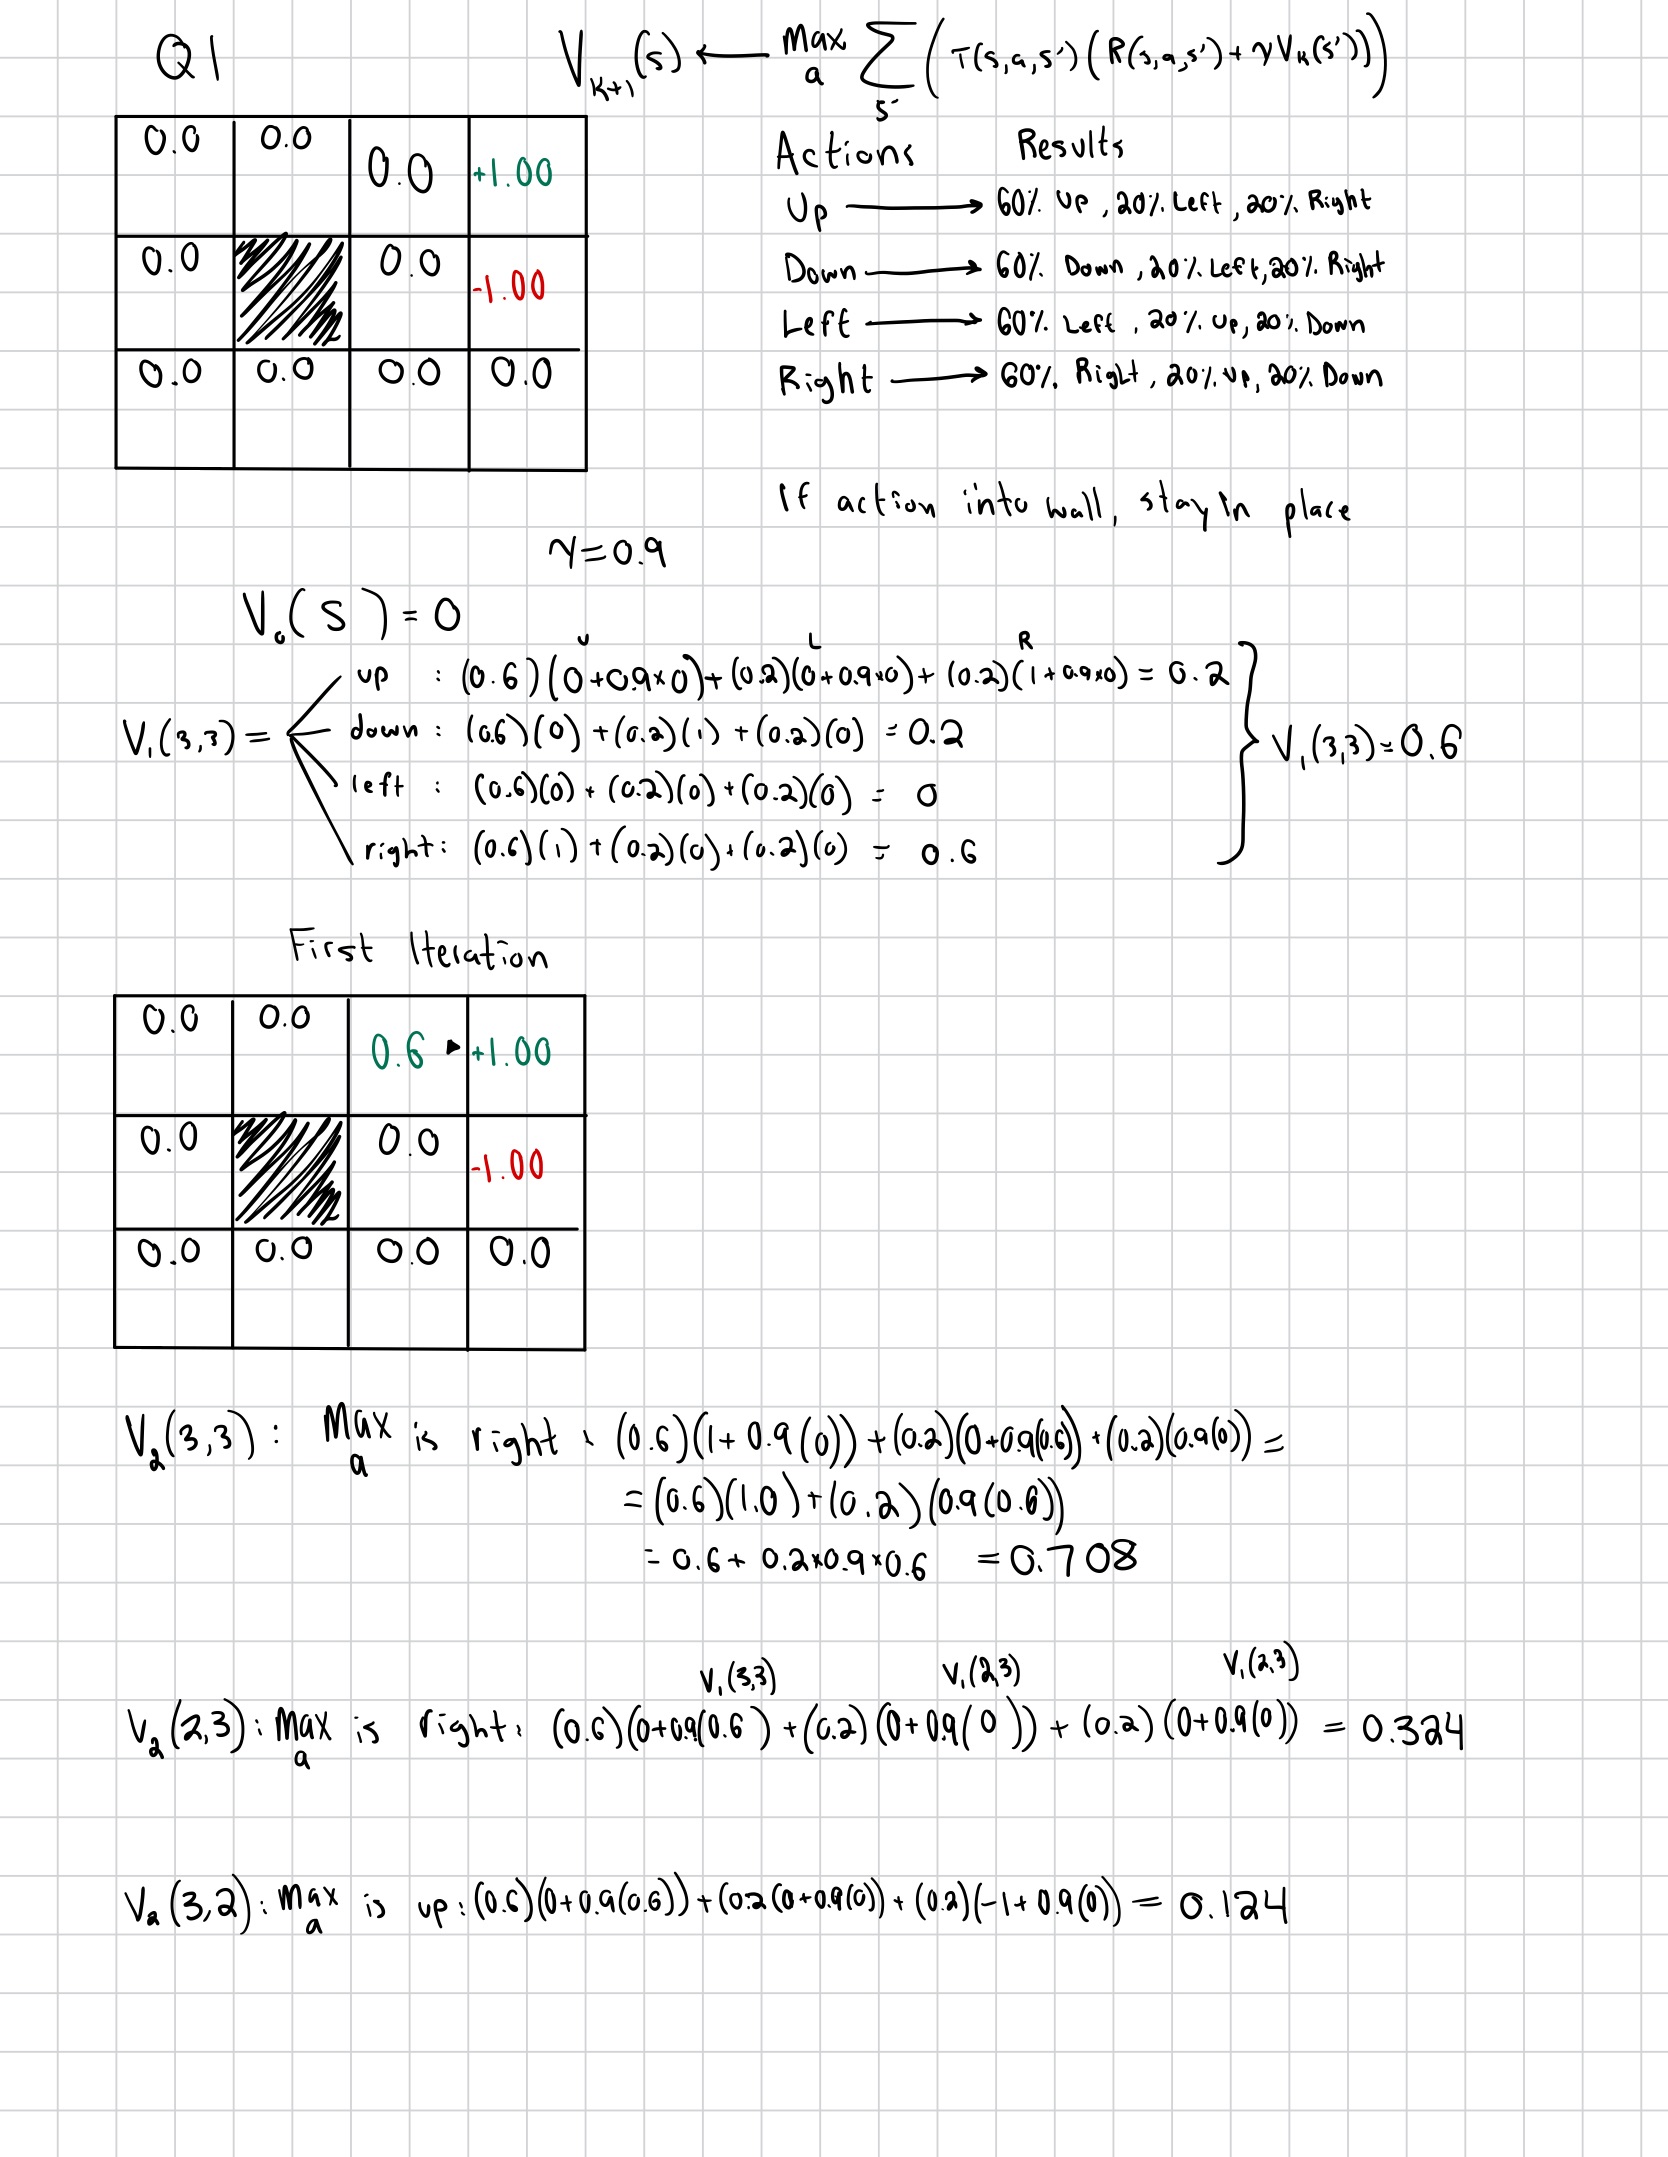 Q1
V_{k+1}(s) ← max_a Σ_{s'} (T(s,a,s')(R(s,a,s') + γV_k(s')))
0.0 0.0 0.0 +1.00
0.0 0.0 -1.00
0.0 0.0 0.0 0.0
Actions Results
Up → 60% Up, 20% Left, 20% Right
Down → 60% Down, 20% Left, 20% Right
Left → 60% Left, 20% Up, 20% Down
Right → 60% Right, 20% Up, 20% Down
If action into wall, stay in place
γ=0.9
V_0(S)=0
U L R
up : (0.6)(0+0.9×0)+(0.2)(0+0.9×0)+(0.2)(1+0.9×0) = 0.2
V_1(3,3) =
down : (0.6)(0)+(0.2)(1)+(0.2)(0) = 0.2
V_1(3,3)=0.6
left : (0.6)(0)+(0.2)(0)+(0.2)(0) = 0
right: (0.6)(1)+(0.2)(0)+(0.2)(0) = 0.6
First Iteration
0.0 0.0 0.6 ▸ +1.00
0.0 0.0 -1.00
0.0 0.0 0.0 0.0
V_2(3,3): max_a is right: (0.6)(1+0.9(0))+(0.2)(0+0.9(0.6))+(0.2)(0.9(0)) =
=(0.6)(1.0)+(0.2)(0.9(0.6))
= 0.6+0.2×0.9×0.6 =0.708
V_1(3,3) V_1(2,3) V_1(2,3)
V_2(2,3): max_a is right: (0.6)(0+0.9(0.6)+(0.2)(0+0.9(0))+(0.2)(0+0.9(0)) = 0.324
V_2(3,2): max_a is up: (0.6)(0+0.9(0.6))+(0.2(0+0.9(0))+(0.2)(-1+0.9(0)) = 0.124